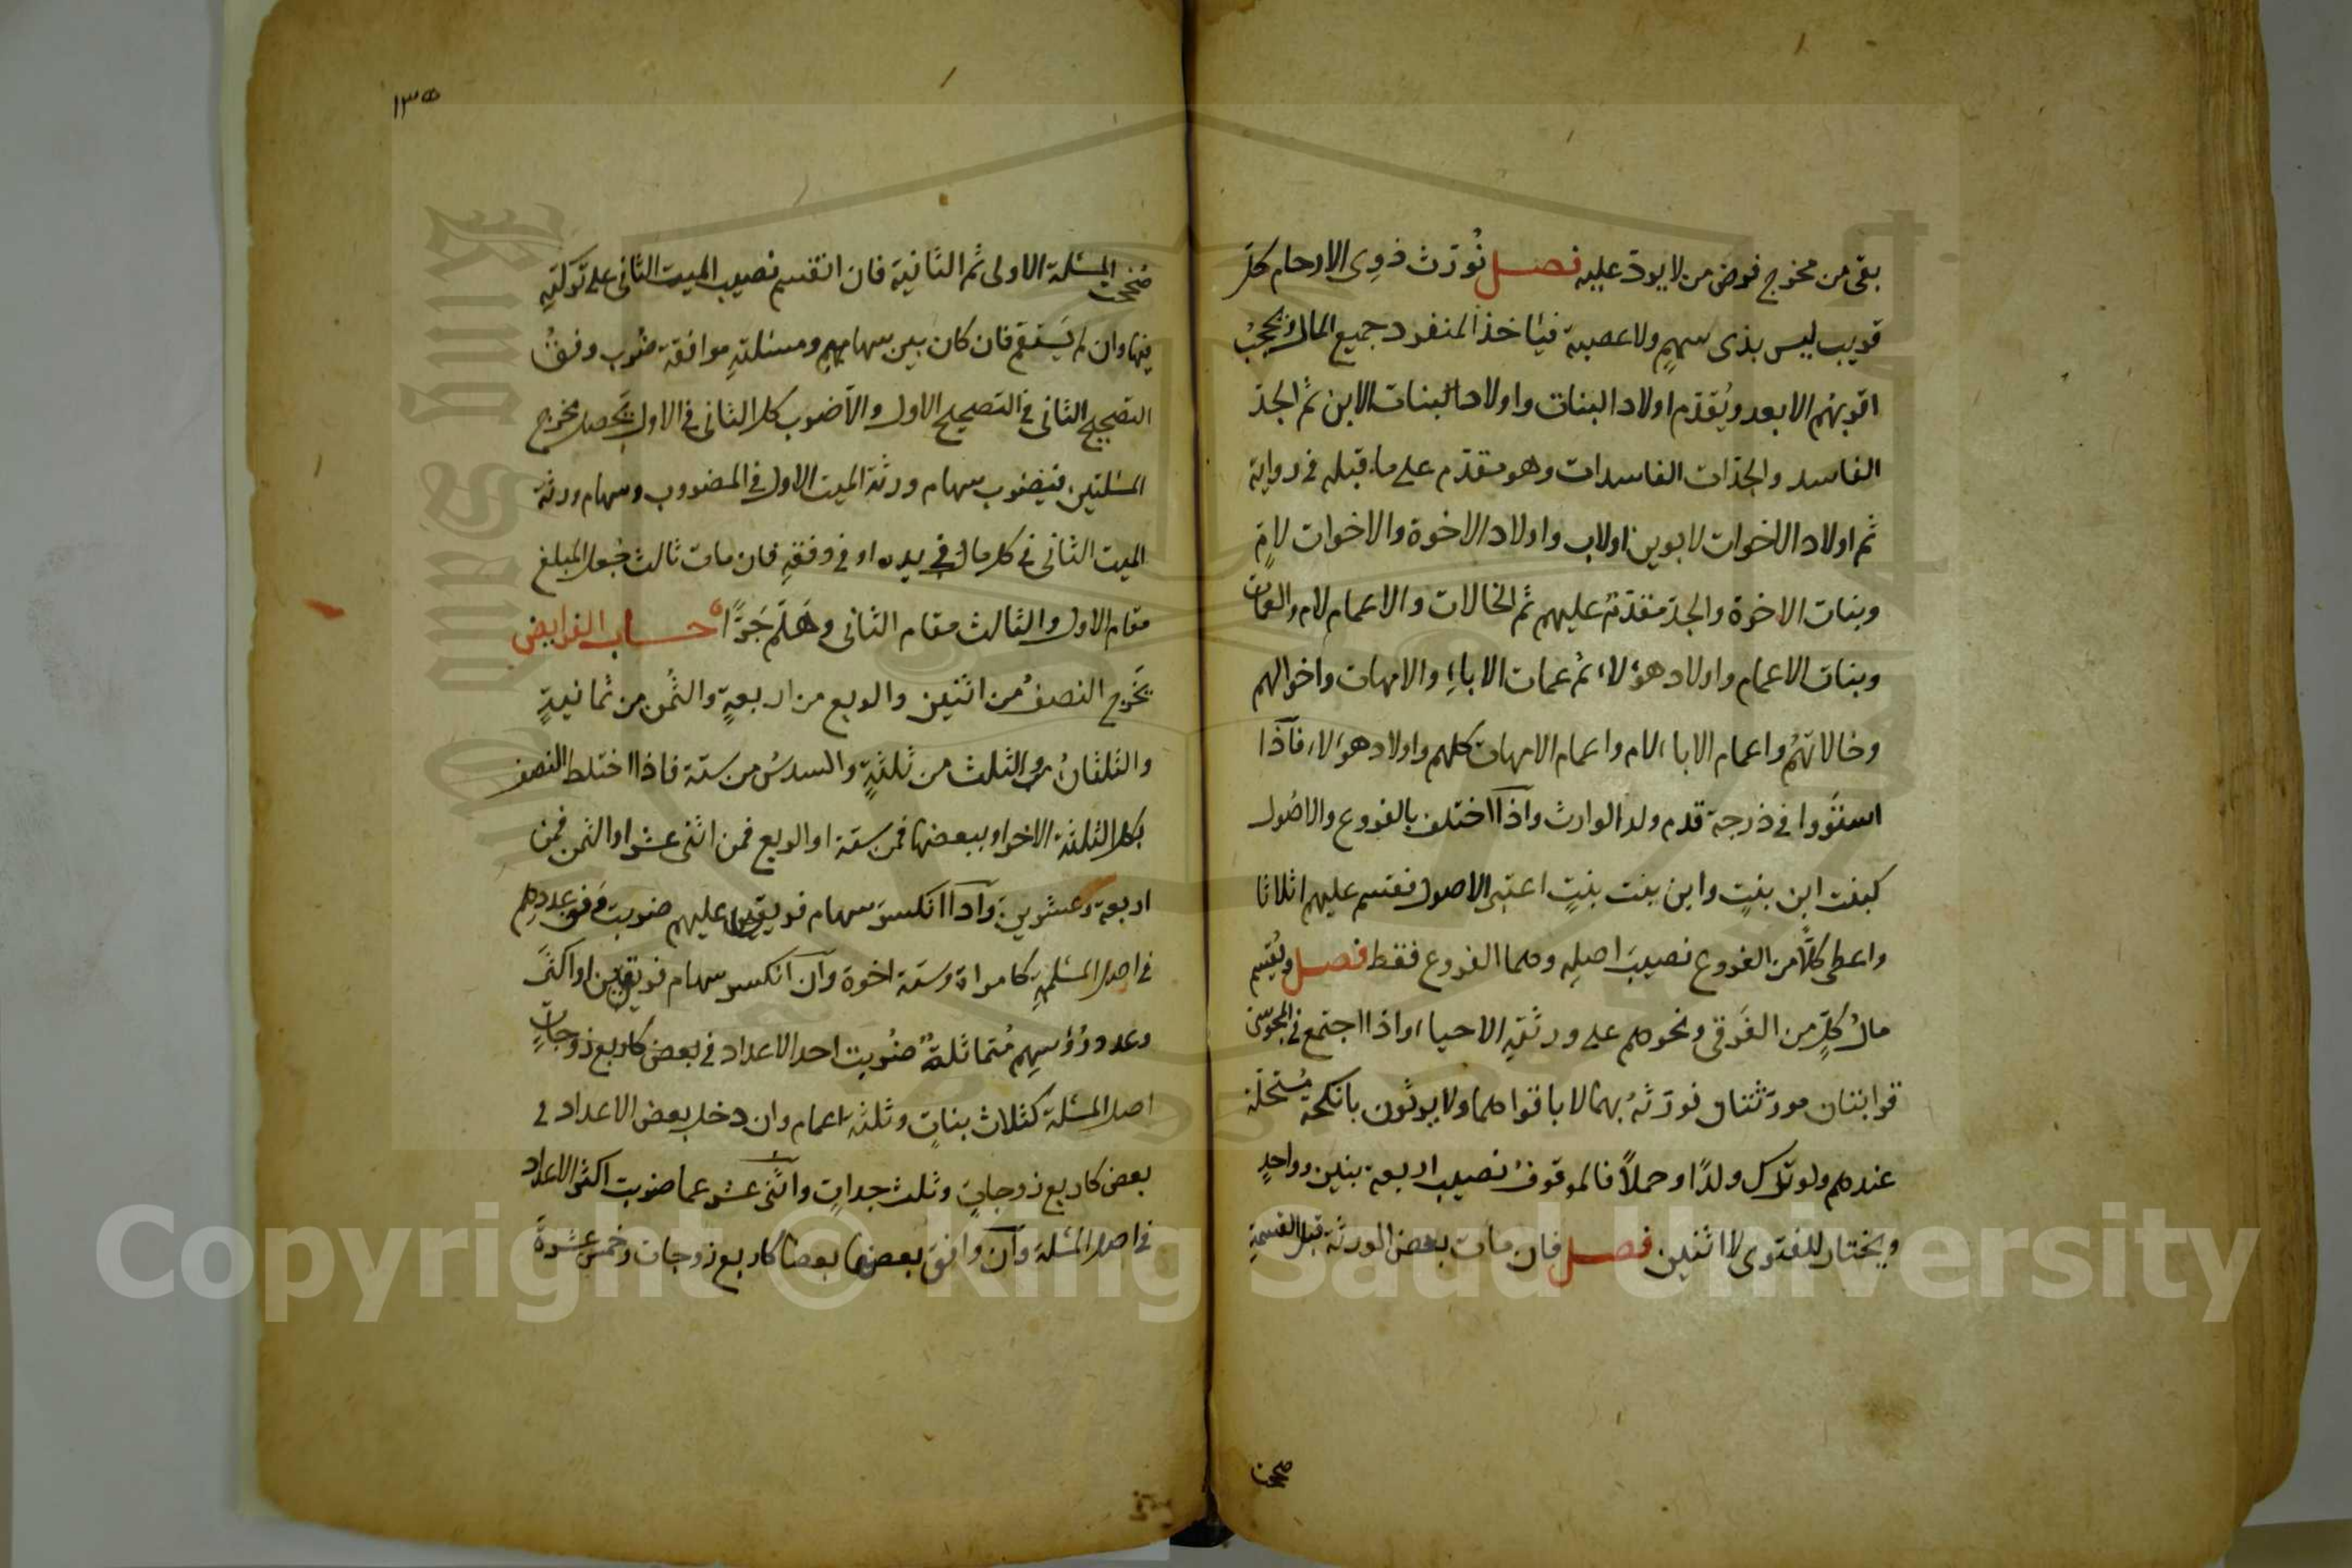 بقى من مخرج فرض من لا يرد عليه فصل نُورّث ذوى الارحام كلّ
قريب ليس بذى سهمٍ ولا عصبة فيأخذ المنفرد جميع المال ويحجبُ
اقربهم الابعد ويُقدّم اولاد البنات واولاد البنات الابن ثم الجدّ
الفاسد والجدّات الفاسدات وهو مقدّم على ما قبله فى رواية
ثم اولاد الاخوات لابوين اولاب واولاد الاخوة والاخوات لامٍ
وبنات الاخوة والجد مقدّمٌ عليهم ثم الخالات والاعمام لام والعمات
وبنات الاعمام واولاد هؤلاء ثم عمات الاباءِ والامهات واخوالهم
وخالاتهُم واعمام الاباء لام واعمام الامهات كلهم واولاد هؤلاء فاذا
استَووا فى درجة قدم ولد الوارث واذا اختلف بالفروع والاصُول
كبنت ابن بنتٍ وابن بنت بنتٍ اعتبر الاصول فقسم عليهم اثلاثا
واعطى كلًّا من الفروع نصيبَ اصلِه وهما الفروع فقط فصل ويُقسم
مالُ كلٍّ من الغَرقى ونحوهم على ورثتِه الاحياء واذا اجتمع فى المجوسىّ
قرابتان مورّثتان نورّثهُ بهما لا باقواهما ولا يورثون بانكحة مُستحلّة
عندهم ولو ترك ولدًا او حملاً فالموقوفُ نصيب اربعة بنين وواحدٍ
ويختار للفتوى لا اثنين فصل فان مات بعض الورثة قبل القسمةِ
صححت
١٣٥
صُححت المسئلة الاولى ثم الثانية فان انقسم نصيب الميت الثانى على تركتِه
فبها وان لم يَستقم فان كان بين سهامهم ومسئلتِه موافقة ضُرب وفقُ
التصحيح الثانى فى التصحيح الاول والّا ضرب كل الثانى فى الاول يَحصل مخرج
المسئلتين فيضرب سهام ورثة الميت الاول فى المضروب وسهام ورثة
الميت الثانى فى كل مال فى يده او فى وفقِه فان مات ثالث جُعل المبلغ
مقام الاول والثالث مقام الثانى وهَلُمَّ جَرًّا حساب الفرايض
يَخرج النصفُ من اثنين والربع من اربعةٍ والثُمن من ثمانيةٍ
والثلثانُ والثلث من ثلثةٍ والسدسُ من ستة فاذا اختلط النصف
بكل الثلثة الاخر او ببعضها فمن ستة او الربع فمن اثنى عشر او الثمن فمن
اربعة وعشرين واذا انكسر سهام فريق عليهم ضربت وفق عددهم
فى اصل المسئلهِ كامراة وستة اخوة وان انكسر سهام فريقين او اكثَر
وعدد رُؤسِهِم مُتماثلةٌ ضُربت احد الاعداد فى بعض كاربع زوجاتٍ
اصل المسئلة كثلاث بناتٍ وثلثة اعمام وان دخل بعض الاعداد فى
بعض كاربع زوجاتٍ وثلث جداتٍ واثنى عشر عما ضربت اكثر الاعداد
فى اصل المسئلة وان وافق بعضها بعضا كاربع زوجات وخمس عشرةَ